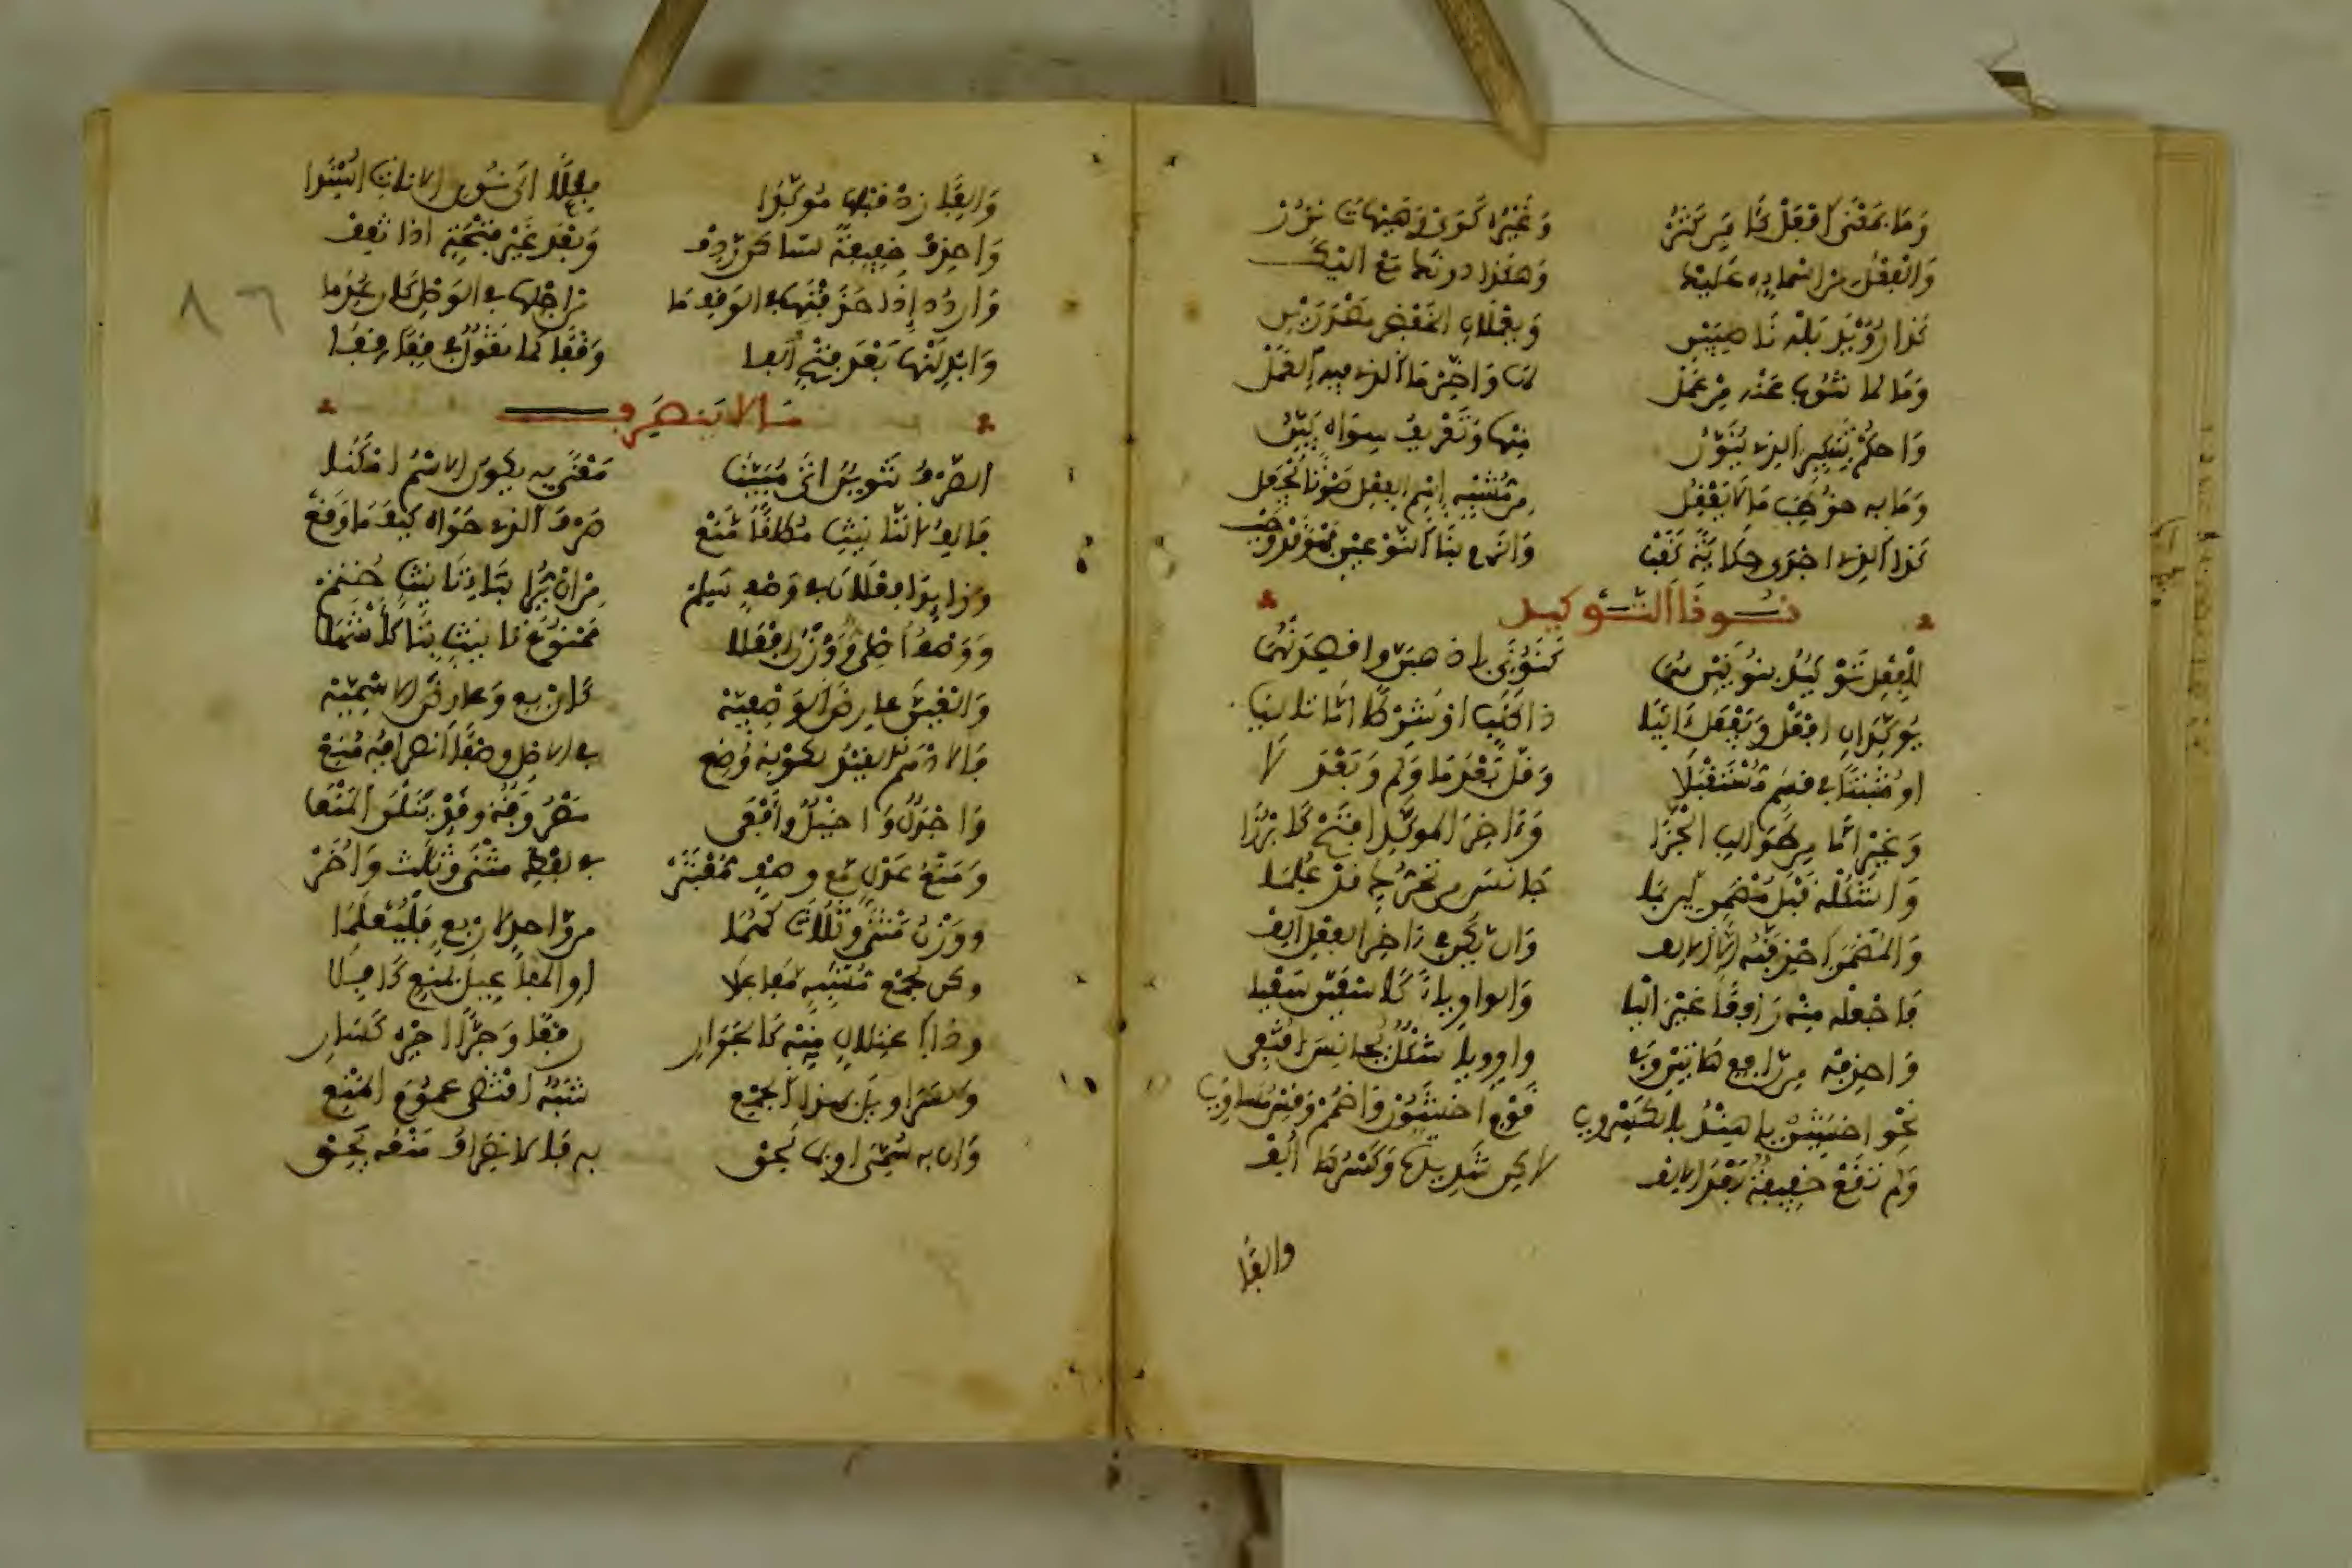 وَمَا بِمَعْنَى افْعَلْ كَآمِينَ كَثُرْ وَغَيْرُهُ كَوَيْ وَهَيْهَاتَ نَزُرْ
وَالفِعْلُ من اسمايه عَلَيْكَا وَهَكَذَا دونَكَ مَعْ اليْكَا
كَذَا رُوَيْدَ بَلْهَ نَاصِبَيْنِ وَيَعْمَلَانِ الخَفْضَ مَصْدَرَيْنِ
وَمَا لما تنوبُ عَنْه مِنْ عَمَلْ لَهَا وَأخِّرْ مَا الذي فيه العَمَلْ
وَاحكُمْ بِتَنكِيرِ الذي يُنَوَّنُ مِنْهَا وَتَعْرِيفُ سِوَاه بَيِّنُ
وَمَا بِه خُوطِبَ مَا لَا يَعْقِلُ مِن مُشْبِهِ اسْمِ الفِعْلِ صَوْتًا يُجْعَلُ
كَذَا الذي اجْدَى حِكَايَةً كَقَبْ وَالزم بِنَا النَّوْعَيْنِ فَهْوَ قَدْ وَجَبْ
نُونَا التَّوْكِيدِ
لِلْفِعْلِ تَوْكِيدٌ بِنُونَيْنِ هُمَا كَنُونَيِ اذهَبَنَّ وَاقْصِدَنْهُمَا
يُوَكِّدَانِ افْعَلْ وَيَفْعَلْ ءَاتِيَا ذَا طَلَبٍ اوْ شَرْطًا امَّا تَالِيَا
او مُثْبَتًا في قَسَمٍ مُسْتَقْبَلَا وَقَلَّ بَعْدَ مَا وَلَمْ وَبَعْدَ لَا
وَغَيْرِ امَّا مِن طَوَالِبِ الجَزَا وَءَاخِرَ المُوَكَّدِ افْتَحْ كَابْرُزَا
وَاشكُلْهُ قَبْلَ مُضْمَرٍ لَيْنٍ بِمَا جَانَسَ مِن تَحَرُّكٍ قَدْ عُلِمَا
وَالمُضْمَرَ احْذِفَنَّهُ إلَّا الالِف وَان يَكُن في ءَاخِرِ الفِعْلِ الِف
فَاجْعَلْهُ مِنْه رَافِعًا غَيْرَ اليَا وَالواوِ يَاءً كَاسْعَيَنَّ سَعْيَا
وَاحْذِفْه مِن رَافِعِ هَاتَيْنِ وَفِي وَاوٍ وَيَا شَكْلٌ مُجَانِسٌ اقْتُفِي
نَحْوُ اخْشَيِنْ يا هِنْدُ بالكَسْرِ وَيَا قَوْمِ اخْشَوُنْ وَاضْمُمْ وَقِسْ مُسَاوِيَا
وَلَمْ تَقَعْ خَفِيفَةٌ بَعْدَ الالِف لكِن شَدِيدَةٌ وَكَسْرُهَا أُلِف
والفًا
وَالِفًا زِدْ قَبْلَهَا مُوَكِّدَا فِعْلًا الَى نُونِ الانَاثِ اسْنِدَا
وَاحذِفْ خَفِيفَةً لساكنٍ رَدِف وَبَعْدَ غَيْرِ فَتْحَةٍ اذا تَقِف
وَاردُدْ إِذَا حَذَفْتَهَا في الوَقْفِ مَا مِن اجْلِهَا في الوَصْلِ كَانَ عُدِمَا
وَابْدِلَنْهَا بَعْدَ فَتْحٍ الِفَا وَقْفًا كَمَا تَقُولُ في قِفَن قِفَا
مَا لا يَنصَرِف
الصَّرْفُ تَنْوِينٌ اتَى مُبَيِّنَا مَعْنًى بِه يكونُ الاسْمُ امْكَنَا
فَالِفُ التَّانِيثِ مُطلَقًا مَنَعْ صَرْفَ الذي حَوَاه كَيْفَمَا وَقَعْ
وَزَايِدَا فَعْلَانَ في وَصْفٍ سَلِم مِن انْ يُرَى بِتَاءِ تَانِيثٍ خُتِم
وَوَصْفٌ اصْلِيٌّ وَوَزْنُ افْعَلَا مَمْنُوعَ تانيثٍ بِتَا كَأَشْهَلَا
وَالْغِيَنَّ عَارِضَ الوَصْفِيَّه كَارْبَعٍ وَعَارِضَ الاسْمِيَّه
فَالادْهَمُ القَيْدُ لِكَوْنِه وُضِعْ في الاصْلِ وَصْفًا انصِرَافُهُ مُنِعْ
وَاجْدَلٌ وَاخْيَلٌ وافْعَى مَصْرُوفَةٌ وَقَدْ يَنَلْنَ المَنْعَا
وَمَنْعُ عَدْلٍ مَع وَصْفٍ مُعْتَبَرْ في لَفْظِ مَثْنَى وَثُلَاثَ وَاُخَرْ
وَوَزْنُ مَثْنَى وَثُلَاثَ كَهُمَا مِن وَاحدٍ لاربعٍ فَلْيُعْلَمَا
وكن لِجَمْعٍ مُشْبِهٍ مَفَاعِلَا اوِ المَفَاعِيلَ بِمَنْعٍ كَافِلَا
وَذَا اعْتِلَالٍ مِنْهُ كَالجَوَارِي رَفْعًا وَجَرًّا اجْرِه كَسَارِي
وَلِسَرَاوِيلَ بهذا الجَمْعِ شَبَهٌ اقْتَضَى عمُومَ المَنْعِ
وَان بِه سُمِّيَ او بِمَا لَحِقْ بِه فَالانصِرَافُ مَنْعُه يَحِقْ
٨٦